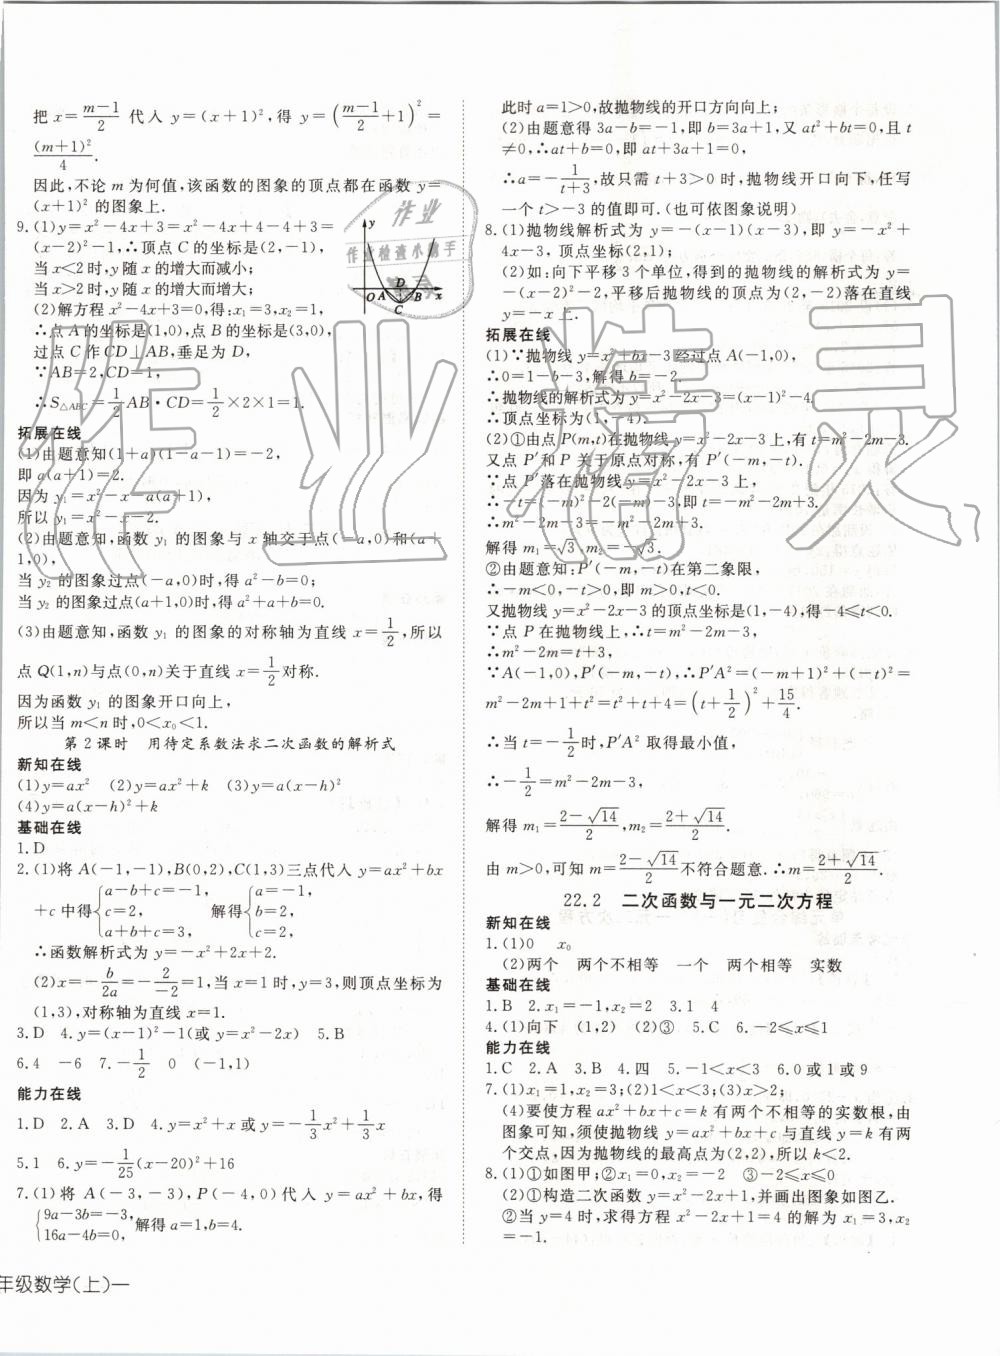 把 x=(m-1)/2 代入 y=(x+1)²,得 y=((m-1)/2+1)²=
(m+1)²/4.
因此,不论 m 为何值,该函数的图象的顶点都在函数 y=
(x+1)² 的图象上.
9.(1)y=x²-4x+3=x²-4x+4-4+3=
(x-2)²-1,∴顶点 C 的坐标是(2,-1),
当 x<2 时,y 随 x 的增大而减小;
当 x>2 时,y 随 x 的增大而增大;
(2)解方程 x²-4x+3=0,得:x₁=3,x₂=1,
∴点 A 的坐标是(1,0),点 B 的坐标是(3,0),
过点 C 作 CD⊥AB,垂足为 D,
∵AB=2,CD=1,
∴S△ABC=1/2 AB·CD=1/2×2×1=1.
y
D
O A B x
C
拓展在线
(1)由题意知(1+a)(1-a-1)=-2,
即 a(a+1)=2.
因为 y₁=x²-x-a(a+1),
所以 y₁=x²-x-2.
(2)由题意知,函数 y₁ 的图象与 x 轴交于点(-a,0)和(a+
1,0),
当 y₂ 的图象过点(-a,0)时,得 a²-ab=0;
当 y₂ 的图象过点(a+1,0)时,得 a²+a+b=0.
(3)由题意知,函数 y₁ 的图象的对称轴为直线 x=1/2,所以
点 Q(1,n)与点(0,n)关于直线 x=1/2 对称.
因为函数 y₁ 的图象开口向上,
所以当 m<n 时,0<x₀<1.
第 2 课时 用待定系数法求二次函数的解析式
新知在线
(1)y=ax² (2)y=ax²+k (3)y=a(x-h)²
(4)y=a(x-h)²+k
基础在线
1.D
2.(1)将 A(-1,-1),B(0,2),C(1,3)三点代入 y=ax²+bx
+c 中得{a-b+c=-1, c=2, a+b+c=3, 解得{a=-1, b=2, c=2.
∴函数解析式为 y=-x²+2x+2.
(2)x=-b/2a=-2/-2=1,当 x=1 时,y=3,则顶点坐标为
(1,3),对称轴为直线 x=1.
3.D 4.y=(x-1)²-1(或 y=x²-2x) 5.B
6.4 -6 7.-1/2 0 (-1,1)
能力在线
1.D 2.A 3.D 4.y=x²+x 或 y=-1/3x²+1/3x
5.1 6.y=-1/25(x-20)²+16
7.(1)将 A(-3,-3),P(-4,0)代入 y=ax²+bx,得
{9a-3b=-3, 16a-4b=0, 解得 a=1,b=4.
年级数学(上)一
此时 a=1>0,故抛物线的开口方向向上;
(2)由题意得 3a-b=-1,即 b=3a+1,又 at²+bt=0,且 t
≠0,∴at+b=0,即 at+3a+1=0,
∴a=-1/(t+3),故只需 t+3>0 时,抛物线开口向下,任写
一个 t>-3 的值即可.(也可依图象说明)
8.(1)抛物线解析式为 y=-(x-1)(x-3),即 y=-x²+
4x-3,顶点坐标(2,1);
(2)如:向下平移 3 个单位,得到的抛物线的解析式为 y=
-(x-2)²-2,平移后抛物线的顶点为(2,-2)落在直线
y=-x 上.
拓展在线
(1)∵抛物线 y=x²+bx-3 经过点 A(-1,0),
∴0=1-b-3,解得 b=-2.
∴抛物线的解析式为 y=x²-2x-3=(x-1)²-4,
∴顶点坐标为(1,-4).
(2)①由点 P(m,t)在抛物线 y=x²-2x-3 上,有 t=m²-2m-3.
又点 P′和 P 关于原点对称,有 P′(-m,-t).
∵点 P′落在抛物线 y=x²-2x-3 上,
∴-t=(-m)²-2(-m)-3,即 t=-m²-2m+3.
∴m²-2m-3=-m²-2m+3.
解得 m₁=√3,m₂=-√3.
②由题意知:P′(-m,-t)在第二象限,
∴-m<0,-t>0,即 m>0,t<0.
又抛物线 y=x²-2x-3 的顶点坐标是(1,-4),得-4≤t<0.
∵点 P 在抛物线上,∴t=m²-2m-3,
∴m²-2m=t+3,
∵A(-1,0),P′(-m,-t),∴P′A²=(-m+1)²+(-t)²=
m²-2m+1+t²=t²+t+4=(t+1/2)²+15/4.
∴当 t=-1/2 时,P′A² 取得最小值,
∴-1/2=m²-2m-3,
解得 m₁=(2-√14)/2,m₂=(2+√14)/2.
由 m>0,可知 m=(2-√14)/2 不符合题意.∴m=(2+√14)/2.
22.2 二次函数与一元二次方程
新知在线
1.(1)0 x₀
(2)两个 两个不相等 一个 两个相等 实数
基础在线
1.B 2.x₁=-1,x₂=2 3.1 4
4.(1)向下 (1,2) (2)③ 5.C 6.-2≤x≤1
能力在线
1.C 2.A 3.B 4.四 5.-1<x<3 6.0 或 1 或 9
7.(1)x₁=1,x₂=3;(2)1<x<3;(3)x>2;
(4)要使方程 ax²+bx+c=k 有两个不相等的实数根,由
图象可知,须使抛物线 y=ax²+bx+c 与直线 y=k 有两
个交点,因为抛物线的最高点为(2,2),所以 k<2.
8.(1)①如图甲;②x₁=0,x₂=-2 ③-2≤x≤0
(2)①构造二次函数 y=x²-2x+1,并画出图象如图乙.
②当 y=4 时,求得方程 x²-2x+1=4 的解为 x₁=3,x₂
=-1.
作业
作业检查小助手
作业精灵